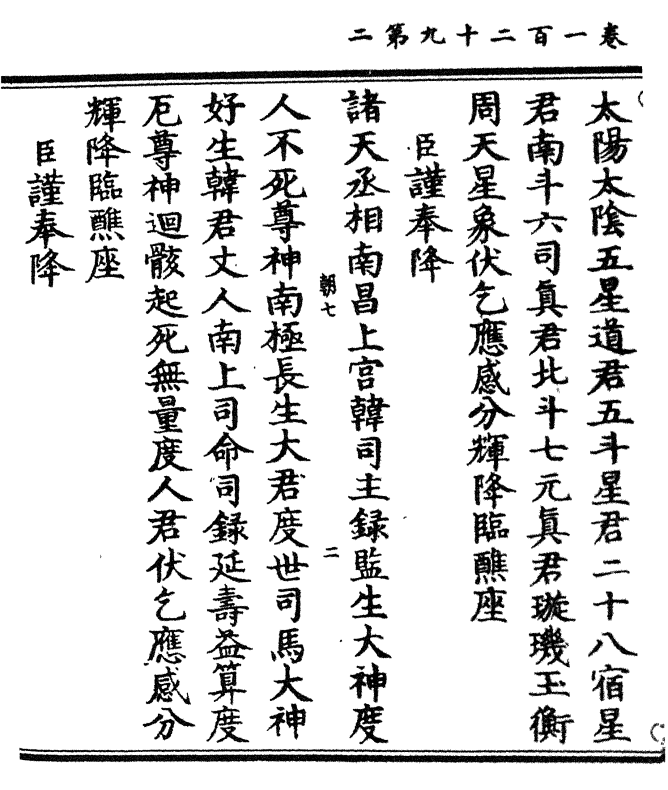 卷一百二十九第二
太陽太陰五星道君五斗星君二十八宿星
君南斗六司眞君北斗七元眞君璇璣玉衡
周天星象伏乞應感分輝降臨醮座
臣謹奉降
諸天丞相南昌上宮韓司主録監生大神度
朝七　二
人不死尊神南極長生大君度世司馬大神
好生韓君丈人南上司命司録延壽益算度
厄尊神迴骸起死無量度人君伏乞應感分
輝降臨醮座
臣謹奉降